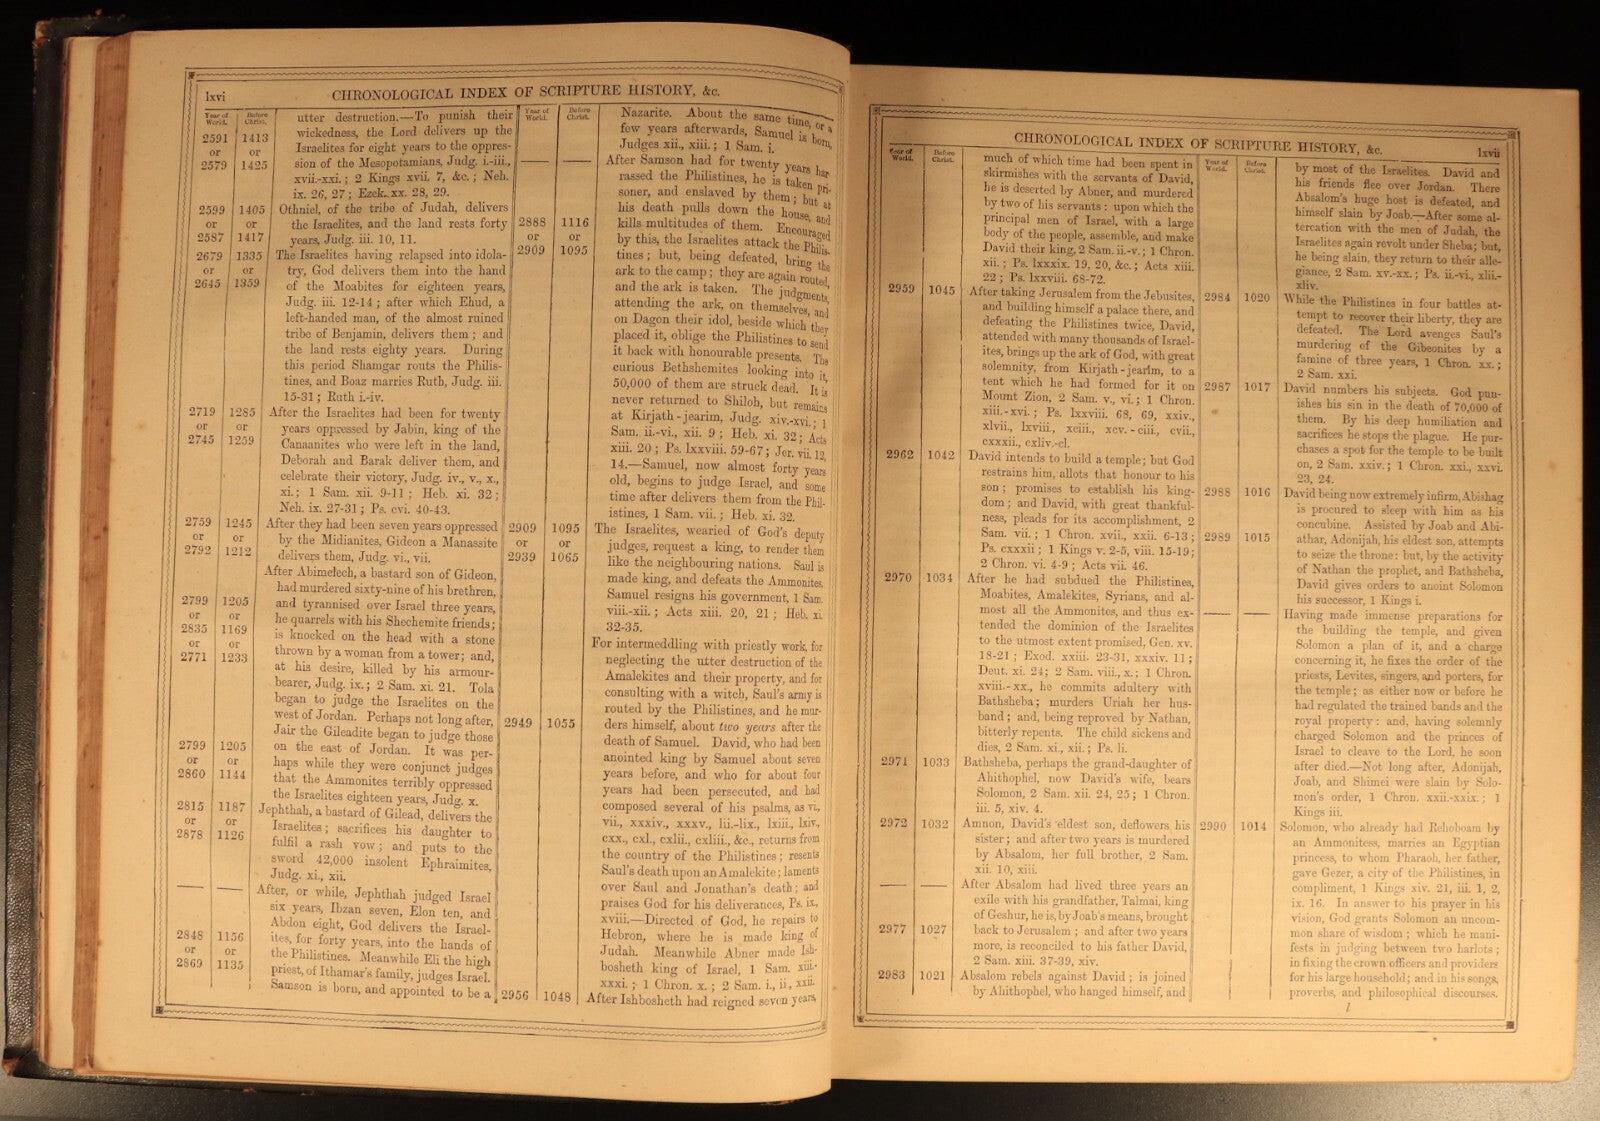 lxvi
CHRONOLOGICAL INDEX OF SCRIPTURE HISTORY, &c.
Year of World.
Before Christ.
2591 1413
or or
2579 1425
utter destruction.—To punish their
wickedness, the Lord delivers up the
Israelites for eight years to the oppres-
sion of the Mesopotamians, Judg. i.-iii.,
xvii.-xxi.; 2 Kings xvii. 7, &c.; Neh.
ix. 26, 27; Ezek. xx. 28, 29.
2599 1405
or or
2587 1417
Othniel, of the tribe of Judah, delivers
the Israelites, and the land rests forty
years, Judg. iii. 10, 11.
2679 1335
or or
2645 1359
The Israelites having relapsed into idola-
try, God delivers them into the hand
of the Moabites for eighteen years,
Judg. iii. 12-14; after which Ehud, a
left-handed man, of the almost ruined
tribe of Benjamin, delivers them; and
the land rests eighty years. During
this period Shamgar routs the Philis-
tines, and Boaz marries Ruth, Judg. iii.
15-31; Ruth i.-iv.
2719 1285
or or
2745 1259
After the Israelites had been for twenty
years oppressed by Jabin, king of the
Canaanites who were left in the land,
Deborah and Barak deliver them, and
celebrate their victory, Judg. iv., v., x.,
xi.; 1 Sam. xii. 9-11; Heb. xi. 32;
Neh. ix. 27-31; Ps. cvi. 40-43.
2759 1245
or or
2792 1212
After they had been seven years oppressed
by the Midianites, Gideon a Manassite
delivers them, Judg. vi., vii.
2799 1205
or or
2835 1169
or or
2771 1233
After Abimelech, a bastard son of Gideon,
had murdered sixty-nine of his brethren,
and tyrannised over Israel three years,
he quarrels with his Shechemite friends;
is knocked on the head with a stone
thrown by a woman from a tower; and,
at his desire, killed by his armour-
bearer, Judg. ix.; 2 Sam. xi. 21. Tola
began to judge the Israelites on the
west of Jordan. Perhaps not long after,
Jair the Gileadite began to judge those
2799 1205
or or
2860 1144
on the east of Jordan. It was per-
haps while they were conjunct judges
that the Ammonites terribly oppressed
the Israelites eighteen years, Judg. x.
2815 1187
or or
2878 1126
Jephthah, a bastard of Gilead, delivers the
Israelites; sacrifices his daughter to
fulfil a rash vow; and puts to the
sword 42,000 insolent Ephraimites,
Judg. xi., xii.
After, or while, Jephthah judged Israel
six years, Ibzan seven, Elon ten, and
Abdon eight, God delivers the Israel-
2848 1156
or or
2869 1135
ites, for forty years, into the hands of
the Philistines. Meanwhile Eli the high
priest, of Ithamar's family, judges Israel.
Samson is born, and appointed to be a
Year of World.
Before Christ.
Nazarite. About the same time, or a
few years afterwards, Samuel is born,
Judges xii., xiii.; 1 Sam. i.
After Samson had for twenty years har-
rassed the Philistines, he is taken pri-
soner, and enslaved by them; but at
his death pulls down the house, and
2888 1116
or or
2909 1095
kills multitudes of them. Encouraged
by this, the Israelites attack the Philis-
tines; but, being defeated, bring the
ark to the camp; they are again routed,
and the ark is taken. The judgments,
attending the ark, on themselves, and
on Dagon their idol, beside which they
placed it, oblige the Philistines to send
it back with honourable presents. The
curious Bethshemites looking into it,
50,000 of them are struck dead. It is
never returned to Shiloh, but remains
at Kirjath-jearim, Judg. xiv.-xvi.; 1
Sam. ii.-vi., xii. 9; Heb. xi. 32; Acts
xiii. 20; Ps. lxxviii. 59-67; Jer. vii. 12,
14.—Samuel, now almost forty years
old, begins to judge Israel, and some
time after delivers them from the Phil-
istines, 1 Sam. vii.; Heb. xi. 32.
2909 1095
or or
2939 1065
The Israelites, wearied of God's deputy
judges, request a king, to render them
like the neighbouring nations. Saul is
made king, and defeats the Ammonites.
Samuel resigns his government, 1 Sam.
viii.-xii.; Acts xiii. 20, 21; Heb. xi.
32-35.
For intermeddling with priestly work, for
neglecting the utter destruction of the
Amalekites and their property, and for
consulting with a witch, Saul's army is
routed by the Philistines, and he mur-
2949 1055
ders himself, about two years after the
death of Samuel. David, who had been
anointed king by Samuel about seven
years before, and who for about four
years had been persecuted, and had
composed several of his psalms, as vi.,
vii., xxxiv., xxxv., lii.-lix., lxiii., lxiv.,
cxx., cxl., cxlii., cxliii., &c., returns from
the country of the Philistines; resents
Saul's death upon an Amalekite; laments
over Saul and Jonathan's death; and
praises God for his deliverances, Ps. ix.,
xviii.—Directed of God, he repairs to
Hebron, where he is made king of
Judah. Meanwhile Abner made Ish-
bosheth king of Israel, 1 Sam. xiii.-
xxxi.; 1 Chron. x.; 2 Sam. i., ii., xxii.
2956 1048
After Ishbosheth had reigned seven years,
CHRONOLOGICAL INDEX OF SCRIPTURE HISTORY, &c.
lxvii
Year of World.
Before Christ.
much of which time had been spent in
skirmishes with the servants of David,
he is deserted by Abner, and murdered
by two of his servants: upon which the
principal men of Israel, with a large
body of the people, assemble, and make
David their king, 2 Sam. ii.-v.; 1 Chron.
xii.; Ps. lxxxix. 19, 20, &c.; Acts xiii.
22; Ps. lxxviii. 68-72.
2959 1045
After taking Jerusalem from the Jebusites,
and building himself a palace there, and
defeating the Philistines twice, David,
attended with many thousands of Israel-
ites, brings up the ark of God, with great
solemnity, from Kirjath-jearim, to a
tent which he had formed for it on
Mount Zion, 2 Sam. v., vi.; 1 Chron.
xiii.-xvi.; Ps. lxxviii. 68, 69, xxiv.,
xlvii., lxviii., xciii., xcv.-ciii., cvii.,
cxxxii., cxliv.-cl.
2962 1042
David intends to build a temple; but God
restrains him, allots that honour to his
son; promises to establish his king-
dom; and David, with great thankful-
ness, pleads for its accomplishment, 2
Sam. vii.; 1 Chron. xvii., xxii. 6-13;
Ps. cxxxii; 1 Kings v. 2-5, viii. 15-19;
2 Chron. vi. 4-9; Acts vii. 46.
2970 1034
After he had subdued the Philistines,
Moabites, Amalekites, Syrians, and al-
most all the Ammonites, and thus ex-
tended the dominion of the Israelites
to the utmost extent promised, Gen. xv.
18-21; Exod. xxiii. 23-31, xxxiv. 11;
Deut. xi. 24; 2 Sam. viii., x.; 1 Chron.
xviii.-xx., he commits adultery with
Bathsheba; murders Uriah her hus-
band; and, being reproved by Nathan,
bitterly repents. The child sickens and
dies, 2 Sam. xi., xii.; Ps. li.
2971 1033
Bathsheba, perhaps the grand-daughter of
Ahithophel, now David's wife, bears
Solomon, 2 Sam. xii. 24, 25; 1 Chron.
iii. 5, xiv. 4.
2972 1032
Amnon, David's eldest son, deflowers his
sister; and after two years is murdered
by Absalom, her full brother, 2 Sam.
xii. 10, xiii.
After Absalom had lived three years an
exile with his grandfather, Talmai, king
of Geshur, he is, by Joab's means, brought
2977 1027
back to Jerusalem; and after two years
more, is reconciled to his father David,
2 Sam. xiii. 37-39, xiv.
2983 1021
Absalom rebels against David; is joined
by Ahithophel, who hanged himself, and
Year of World.
Before Christ.
by most of the Israelites. David and
his friends flee over Jordan. There
Absalom's huge host is defeated, and
himself slain by Joab.—After some al-
tercation with the men of Judah, the
Israelites again revolt under Sheba; but,
he being slain, they return to their alle-
giance, 2 Sam. xv.-xx.; Ps. ii.-vi., xlii.-
xliv.
2984 1020
While the Philistines in four battles at-
tempt to recover their liberty, they are
defeated. The Lord avenges Saul's
murdering of the Gibeonites by a
famine of three years, 1 Chron. xx.;
2 Sam. xxi.
2987 1017
David numbers his subjects. God pun-
ishes his sin in the death of 70,000 of
them. By his deep humiliation and
sacrifices he stops the plague. He pur-
chases a spot for the temple to be built
on, 2 Sam. xxiv.; 1 Chron. xxi., xxvi.
23, 24.
2988 1016
David being now extremely infirm, Abishag
is procured to sleep with him as his
concubine. Assisted by Joab and Abi-
2989 1015
athar, Adonijah, his eldest son, attempts
to seize the throne: but, by the activity
of Nathan the prophet, and Bathsheba,
David gives orders to anoint Solomon
his successor, 1 Kings i.
Having made immense preparations for
the building the temple, and given
Solomon a plan of it, and a charge
concerning it, he fixes the order of the
priests, Levites, singers, and porters, for
the temple; as either now or before he
had regulated the trained bands and the
royal property: and, having solemnly
charged Solomon and the princes of
Israel to cleave to the Lord, he soon
after died.—Not long after, Adonijah,
Joab, and Shimei were slain by Solo-
mon's order, 1 Chron. xxii.-xxix.; 1
Kings iii.
2990 1014
Solomon, who already had Rehoboam by
an Ammonitess, marries an Egyptian
princess, to whom Pharaoh, her father,
gave Gezer, a city of the Philistines, in
compliment, 1 Kings xiv. 21, iii. 1, 2,
ix. 16. In answer to his prayer in his
vision, God grants Solomon an uncom-
mon share of wisdom; which he mani-
fests in judging between two harlots;
in fixing the crown officers and providers
for his large household; and in his songs,
proverbs, and philosophical discourses.
l